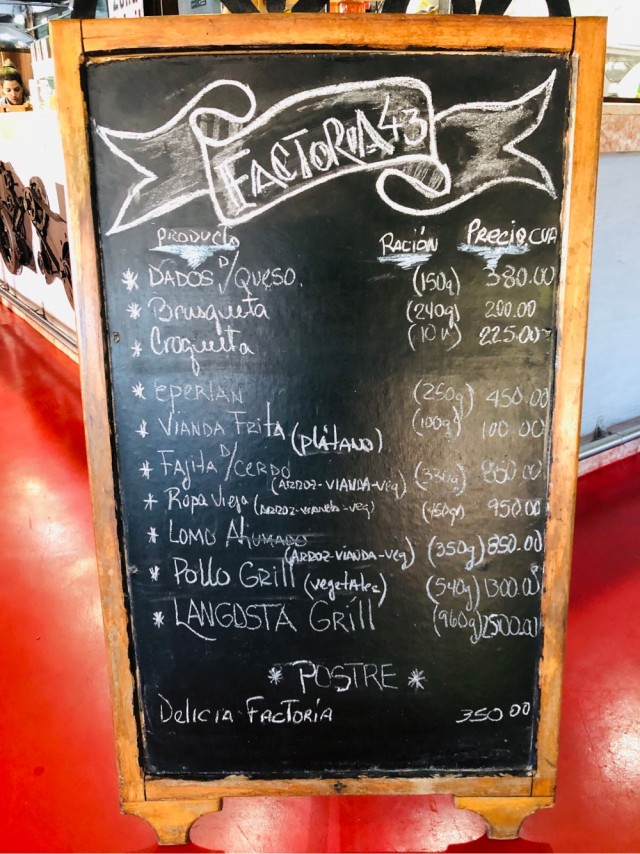 FACTORIA 43
PRODUCTO RACIÓN PRECIO CUP
* DADOS D/QUESO. (150g) 380.00
* Brusqueta (240g) 200.00
* Croqueta (10u) 225.00
* eperlan (250g) 450.00
* VIANDA FRITA (plátano) (100g) 100.00
* FAJITA D/CERDO (ARROZ-VIANDA-veg) 850.00
* ROPA VIEJA (ARROZ-vianda-veg) (450gr) 950.00
* LOMO AHUMADO (ARROZ-VIANDA-veg) (350g) 850.00
* POLLO GRILL (vegetales) (540g) 1300.00
* LANGOSTA GRILL (960g) 2500.00
* POSTRE *
Delicia FACTORÍA 350.00